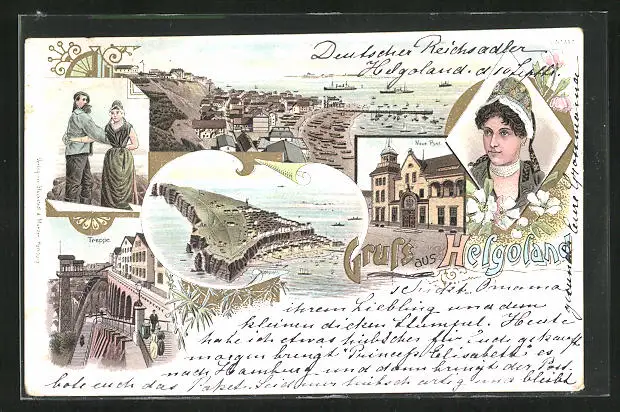 Deutscher Reichsadler
Helgoland. d 10 Sept.
Neue Post.
Treppe.
Gruss aus Helgoland
schickt Omama
ihrem Liebling und dem
kleinen dicken Stumpul. Heute
habe ich etwas hübsches für Euch gekauft
morgen bringt "Princess Elisabeth" es
nach Hamburg und dann bringt der Post
bote euch das Paket. Seid nur hübsch artig und bleibt
gesund eure Grossmama